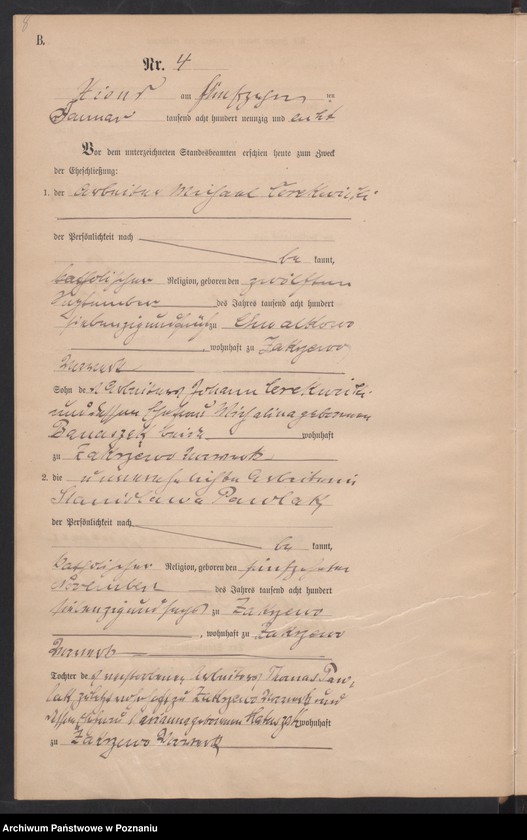 8
B.
Nr. 4
Xions am fünfzehn ten
Januar tausend acht hundert neunzig und acht
Vor dem unterzeichneten Standesbeamten erschien heute zum Zweck
der Eheschließung:
1. der Arbeiter Michael Cerekwicki
der Persönlichkeit nach
be kannt,
katholischer Religion, geboren den zwölften
September des Jahres tausend acht hundert
siebenzig und fünf zu Chwalkowo
, wohnhaft zu Zakrzewo
Vorwerk
Sohn des Arbeiters Johann Cerekwicki
und dessen Ehefrau Michalina geborenen
Banaszek beide wohnhaft
zu Zakrzewo Vorwerk
2. die unverehelichte Arbeiterin
Stanislawa Pawlak
der Persönlichkeit nach
be kannt,
katholischer Religion, geboren den fünfzehnten
November des Jahres tausend acht hundert
siebenzig und sechs zu Zakrzewo
, wohnhaft zu Zakrzewo
Vorwerk
Tochter des verstorbenen Arbeiters Thomas Paw-
lak zuletzt wohnhaft zu Zakrzewo Vorwerk und
dessen Ehefrau Marianna geborenen wohnhaft
zu Zakrzewo Vorwerk
Archiwum Państwowe w Poznaniu